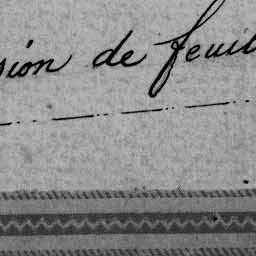 sión de feuil